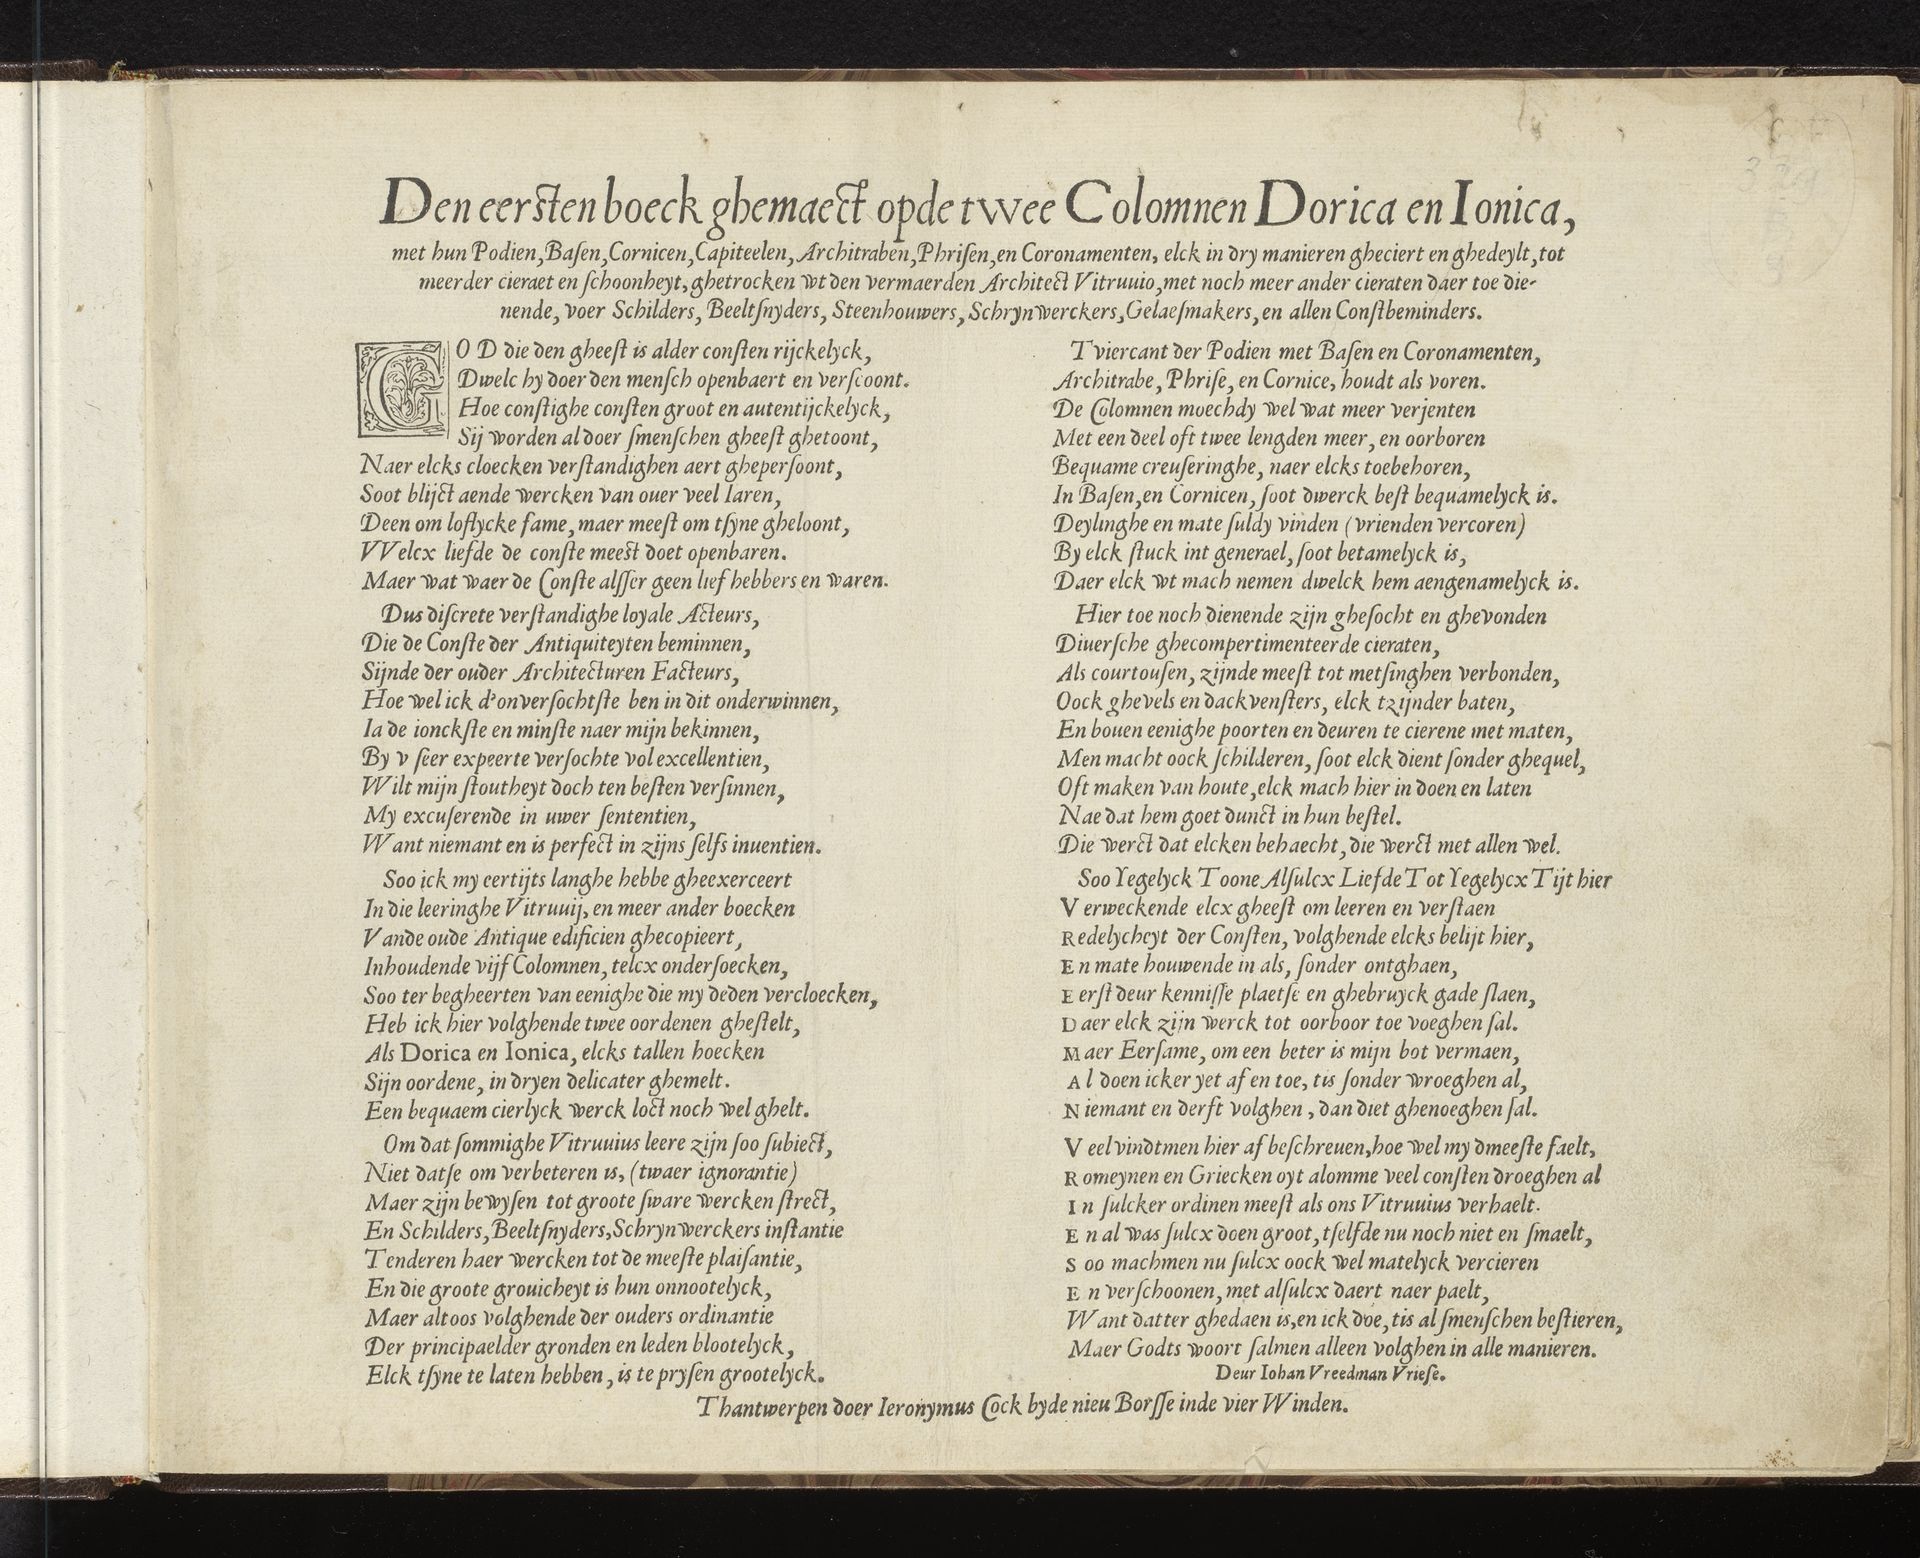 Den eersten boeck ghemaect op de twee Colomnen Dorica en Ionica,
met hun Podien, Basen, Cornicen, Capiteelen, Architraben, Phrisen, en Coronamenten, elck in dry manieren gheciert en ghedeylt, tot
meerder cieraet en schoonheyt, ghetrocken wt den vermaerden Architect Vitruuio, met noch meer ander cieraten daer toe die-
nende, voer Schilders, Beeltsnyders, Steenhouwers, Schrynwerckers, Gelaesmakers, en allen Constbeminders.
GOD die den gheest is alder consten rijckelyck,
Dwelc hy doer den mensch openbaert en verscoont.
Hoe constighe consten groot en autentijckelyck,
Sij worden al doer smenschen gheest ghetoont,
Naer elcks cloecken verstandighen aert ghepersoont,
Soot blijct aende wercken van ouer veel Iaren,
Deen om loflycke fame, maer meest om tsyne gheloont,
VVelcx liefde de conste meest doet openbaren.
Maer wat waer de Conste alsser geen lief hebbers en waren.
Dus discrete verstandighe loyale Acteurs,
Die de Conste der Antiquiteyten beminnen,
Sijnde der ouder Architecturen Facteurs,
Hoe wel ick d'onversochtste ben in dit onderwinnen,
Ia de ionckste en minste naer mijn bekinnen,
By v seer expeerte versochte vol excellentien,
Wilt mijn stoutheyt doch ten besten versinnen,
My excuserende in uwer sententien,
Want niemant en is perfect in zijns selfs inuentien.
Soo ick my eertijts langhe hebbe gheexerceert
In die leeringhe Vitruuij, en meer ander boecken
Vande oude Antique edificien ghecopieert,
Inhoudende vijf Colomnen, telcx ondersoecken,
Soo ter begheerten van eenighe die my deden vercloecken,
Heb ick hier volghende twee oordenen ghestelt,
Als Dorica en Ionica, elcks tallen hoecken
Sijn oordene, in dryen delicater ghemelt.
Een bequaem cierlyck werck loct noch wel ghelt.
Om dat sommighe Vitruuius leere zijn soo subiect,
Niet datse om verbeteren is, (twaer ignorantie)
Maer zijn bewysen tot groote sware wercken strect,
En Schilders, Beeltsnyders, Schrynwerckers instantie
Tenderen haer wercken tot de meeste plaisantie,
En die groote grouicheyt is hun onnootelyck,
Maer altoos volghende der ouders ordinantie
Der principaelder gronden en leden blootelyck,
Elck tsyne te laten hebben, is te prysen grootelyck.
Tviercant der Podien met Basen en Coronamenten,
Architrabe, Phrise, en Cornice, houdt als voren.
De Colomnen moechdy wel wat meer verjenten
Met een deel oft twee lengden meer, en oorboren
Bequame creuseringhe, naer elcks toebehoren,
In Basen, en Cornicen, soot dwerck best bequamelyck is.
Deylinghe en mate suldy vinden (vrienden vercoren)
By elck stuck int generael, soot betamelyck is,
Daer elck wt mach nemen dwelck hem aengenamelyck is.
Hier toe noch dienende zijn ghesocht en ghevonden
Diuersche ghecompertimenteerde cieraten,
Als courtousen, zijnde meest tot metsinghen verbonden,
Oock ghevels en dackvensters, elck tzijnder baten,
En bouen eenighe poorten en deuren te cierene met maten,
Men macht oock schilderen, soot elck dient sonder ghequel,
Oft maken van houte, elck mach hier in doen en laten
Nae dat hem goet dunct in hun bestel.
Die werct dat elcken behaecht, die werct met allen wel.
Soo Yegelyck Toone Alsulcx Liefde Tot Yegelycx Tijt hier
Verweckende elcx gheest om leeren en verstaen
Redelycheyt der Consten, volghende elcks belijt hier,
En mate houwende in als, sonder ontghaen,
Eerst deur kennisse plaetse en ghebruyck gade slaen,
Daer elck zijn werck tot oorboor toe voeghen sal.
Maer Eersame, om een beter is mijn bot vermaen,
Al doen icker yet af en toe, tis sonder wroeghen al,
Niemant en derft volghen, dan diet ghenoeghen sal.
Veel vindtmen hier af beschreuen, hoe wel my dmeeste faelt,
Romeynen en Griecken oyt alomme veel consten droeghen al
In sulcker ordinen meest als ons Vitruuius verhaelt.
En al was sulcx doen groot, tselfde nu noch niet en smaelt,
Soo machmen nu sulcx oock wel matelyck vercieren
En verschoonen, met alsulcx daert naer paelt,
Want datter ghedaen is, en ick doe, tis al smenschen bestieren,
Maer Godts woort salmen alleen volghen in alle manieren.
Deur Iohan Vreedman Vriese.
Thantwerpen doer Ieronymus Cock by de nieu Borsse inde vier Winden.